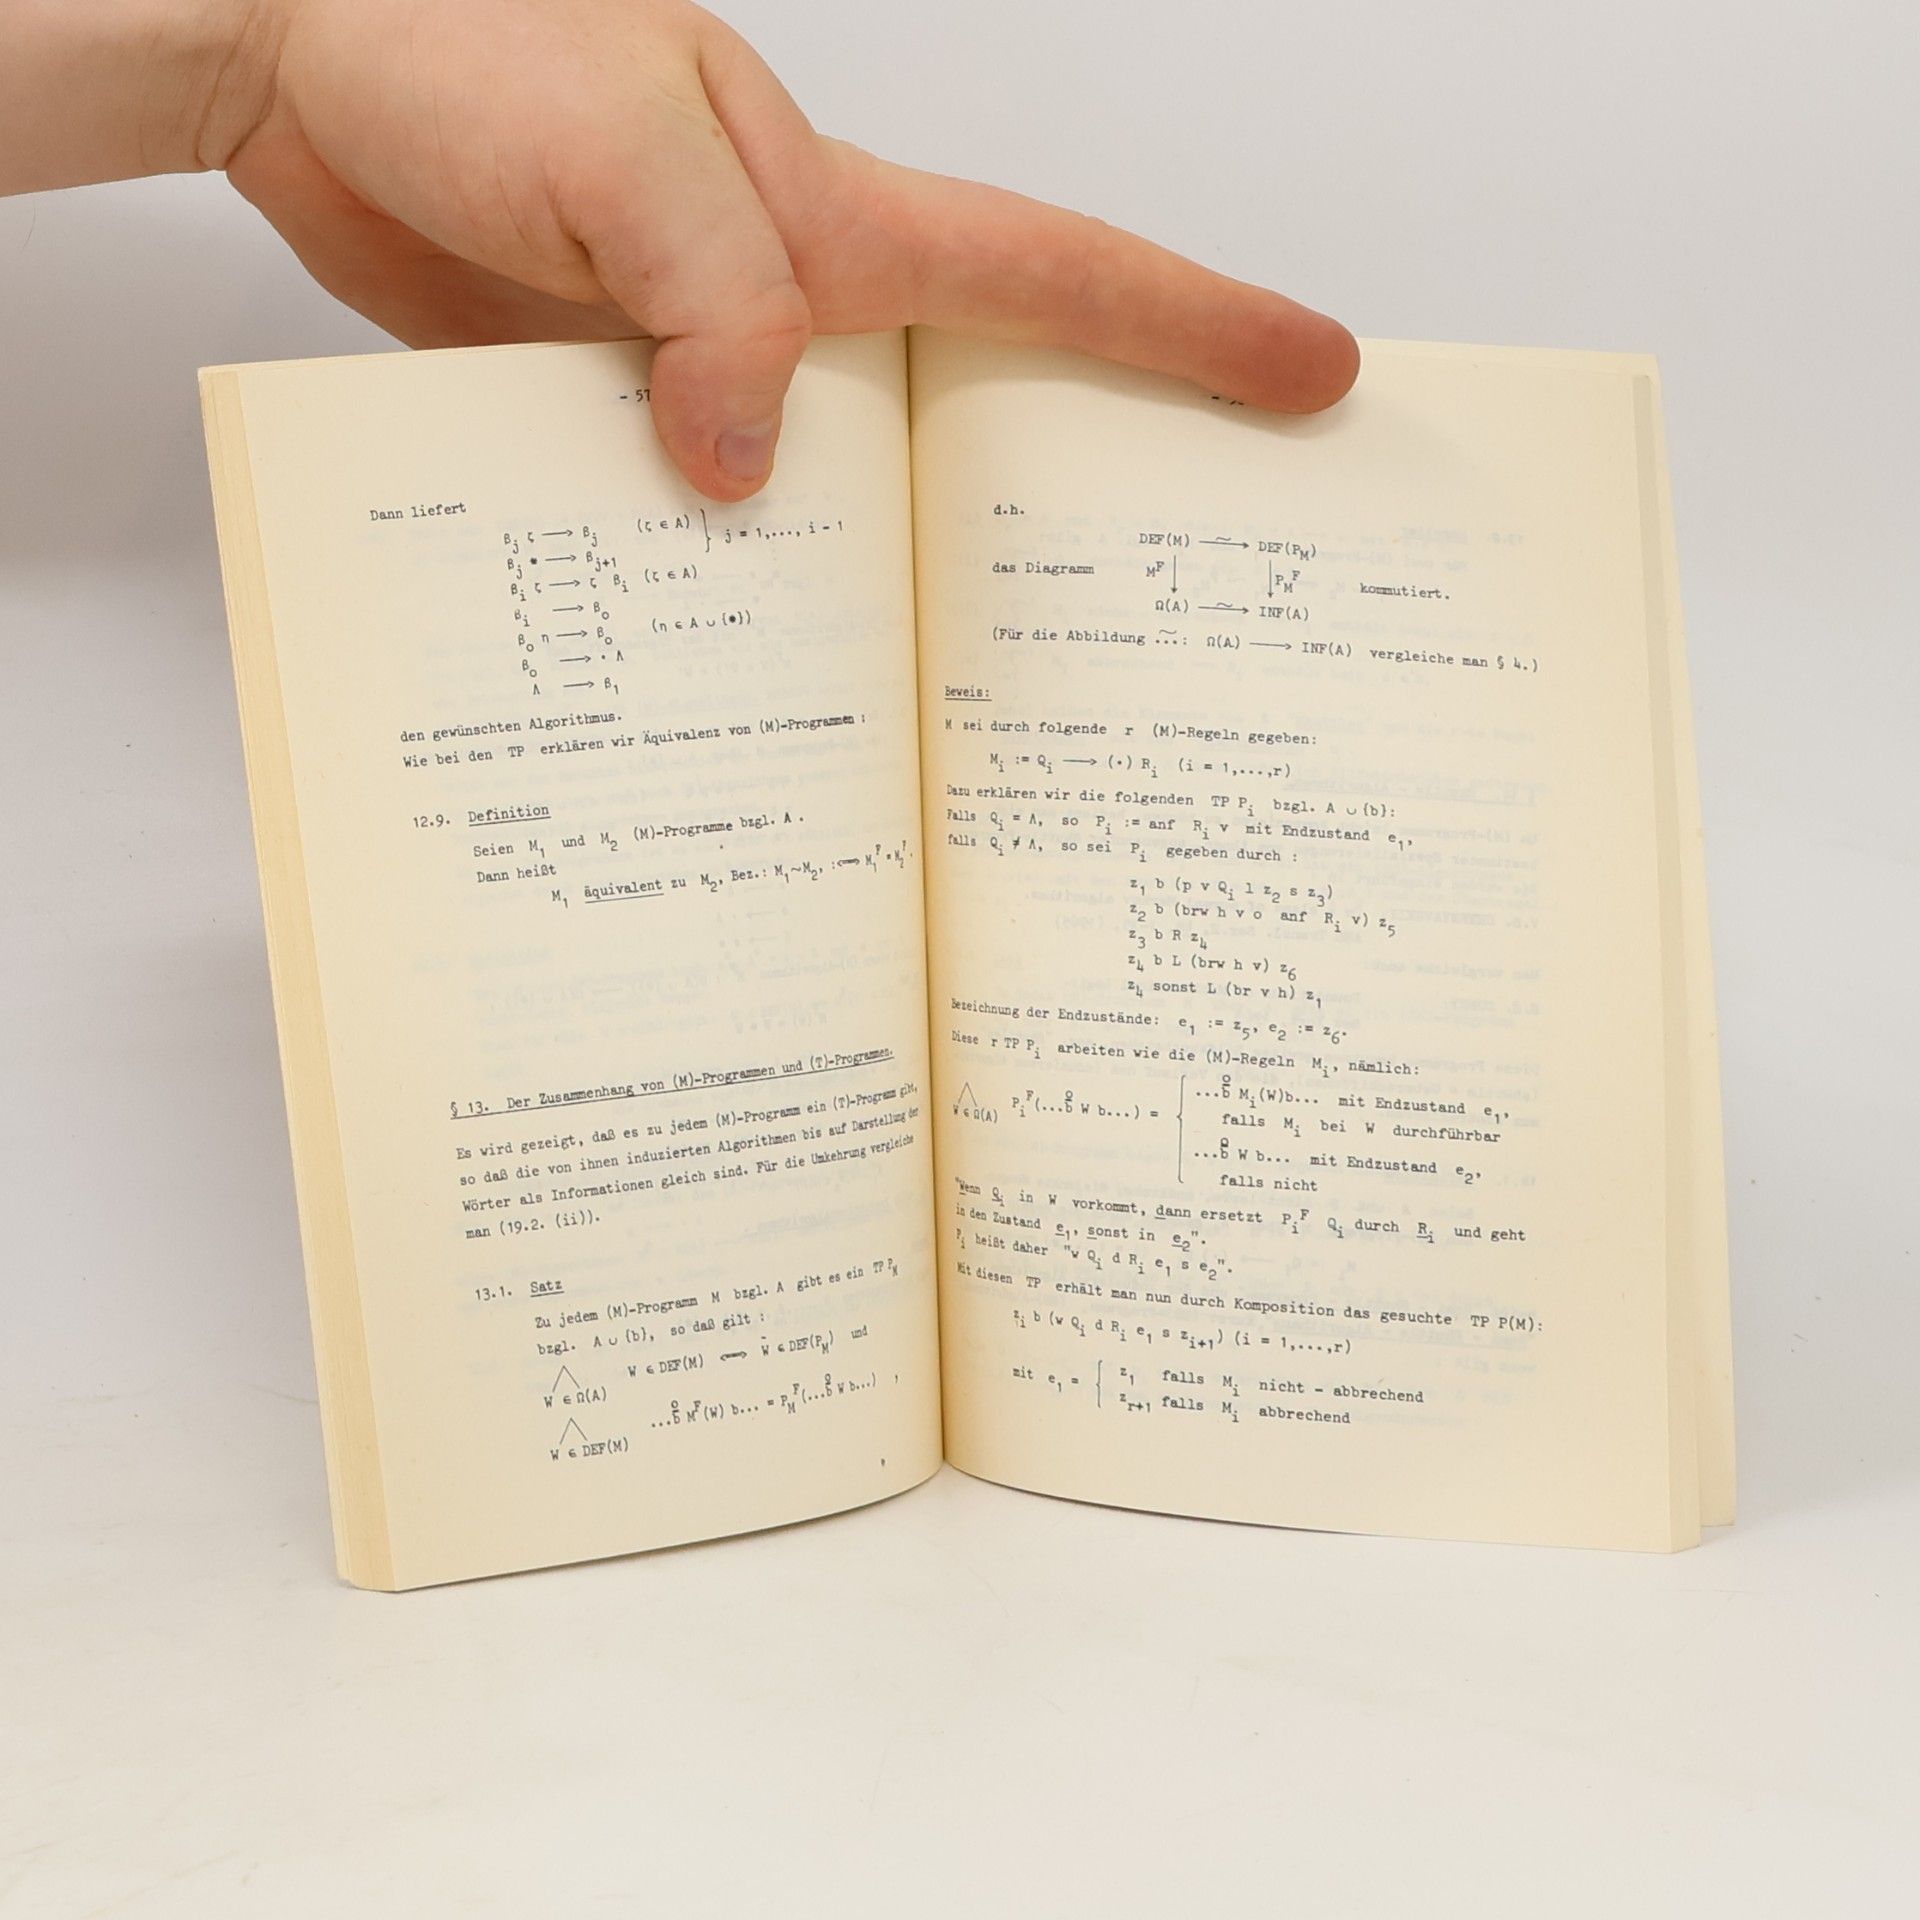 - 57
Dann liefert
β_j ζ ⟶ β_j (ζ ∈ A) } j = 1,..., i - 1
β_j * ⟶ β_j+1
β_i ζ ⟶ ζ β_i (ζ ∈ A)
β_i ⟶ β_o
β_o η ⟶ β_o (η ∈ A ∪ {*})
β_o ⟶ · Λ
Λ ⟶ β_1
den gewünschten Algorithmus.
Wie bei den TP erklären wir Äquivalenz von (M)-Programmen :
12.9. Definition
Seien M_1 und M_2 (M)-Programme bzgl. A .
Dann heißt
M_1 äquivalent zu M_2, Bez.: M_1~M_2, :⟺ M_1^F = M_2^F.
§ 13. Der Zusammenhang von (M)-Programmen und (T)-Programmen.
Es wird gezeigt, daß es zu jedem (M)-Programm ein (T)-Programm gibt,
so daß die von ihnen induzierten Algorithmen bis auf Darstellung der
Wörter als Informationen gleich sind. Für die Umkehrung vergleiche
man (19.2. (ii)).
13.1. Satz
Zu jedem (M)-Programm M bzgl. A gibt es ein TP P_M
bzgl. A ∪ {b}, so daß gilt :
W ∈ Ω(A) W ∈ DEF(M) ⟺ W̃ ∈ DEF(P_M) und
W ∈ DEF(M) ...b̊ M^F(W) b... = P_M^F(...b̊ W b...) ,
d.h.
DEF(M) ⟶~ DEF(P_M)
das Diagramm M^F ↓ ↓ P_M^F kommutiert.
Ω(A) ⟶~ INF(A)
(Für die Abbildung ...~: Ω(A) ⟶ INF(A) vergleiche man § 4.)
Beweis:
M sei durch folgende r (M)-Regeln gegeben:
M_i := Q_i ⟶ (·) R_i (i = 1,...,r)
Dazu erklären wir die folgenden TP P_i bzgl. A ∪ {b}:
Falls Q_i = Λ, so P_i := anf R_i v mit Endzustand e_1,
falls Q_i ≠ Λ, so sei P_i gegeben durch :
z_1 b (p v Q_i l z_2 s z_3)
z_2 b (brw h v o anf R_i v) z_5
z_3 b R z_4
z_4 b L (brw h v) z_6
z_4 sonst L (br v h) z_1
Bezeichnung der Endzustände: e_1 := z_5, e_2 := z_6.
Diese r TP P_i arbeiten wie die (M)-Regeln M_i, nämlich:
W ∈ Ω(A) P_i^F(...b̊ W b...) = { ...b̊ M_i(W)b... mit Endzustand e_1,
falls M_i bei W durchführbar
...b̊ W b... mit Endzustand e_2,
falls nicht
"Wenn Q_i in W vorkommt, dann ersetzt P_i^F Q_i durch R_i und geht
in den Zustand e_1, sonst in e_2".
P_i heißt daher "w Q_i d R_i e_1 s e_2".
Mit diesen TP erhält man nun durch Komposition das gesuchte TP P(M):
z_i b (w Q_i d R_i e_1 s z_i+1) (i = 1,...,r)
mit e_1 = { z_1 falls M_i nicht - abbrechend
z_r+1 falls M_i abbrechend